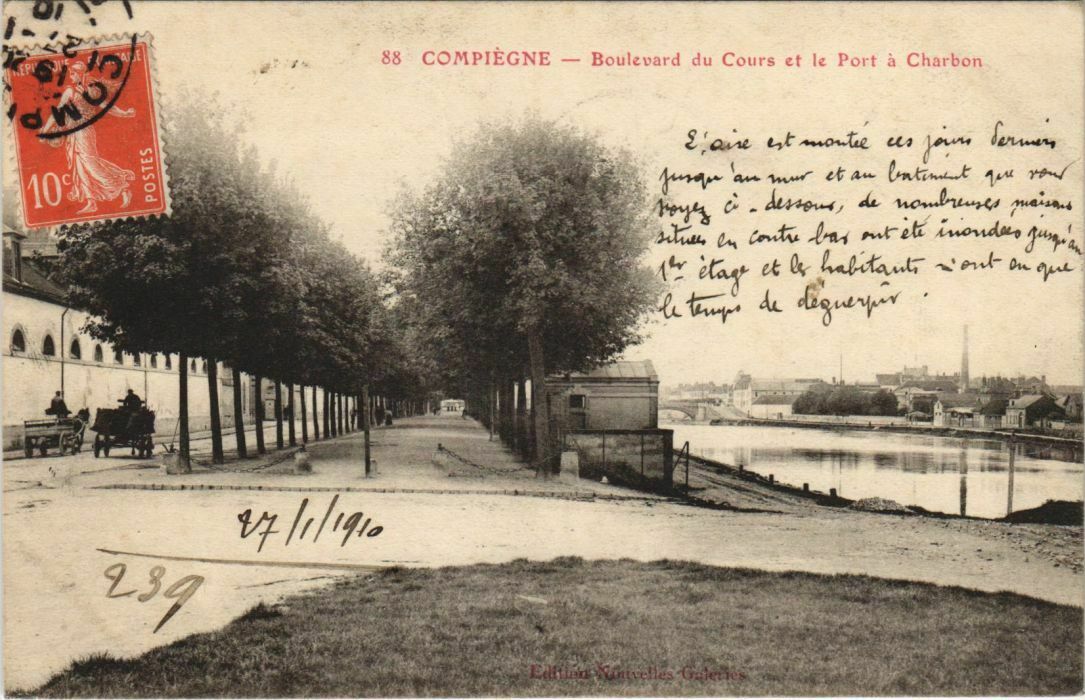 88 COMPIÈGNE — Boulevard du Cours et le Port à Charbon
RÉPUBLIQUE FRANÇAISE
10c
POSTES
COMP
L'Oise est montée ces jours derniers
jusqu'au mur et au batiment que vous
voyez ci-dessous, de nombreuses maisons
situées en contre bas ont été inondées jusqu'au
1er étage et les habitants n'ont eu que
le temps de déguerpir.
27/1/1910
239
Edition Nouvelles Galeries